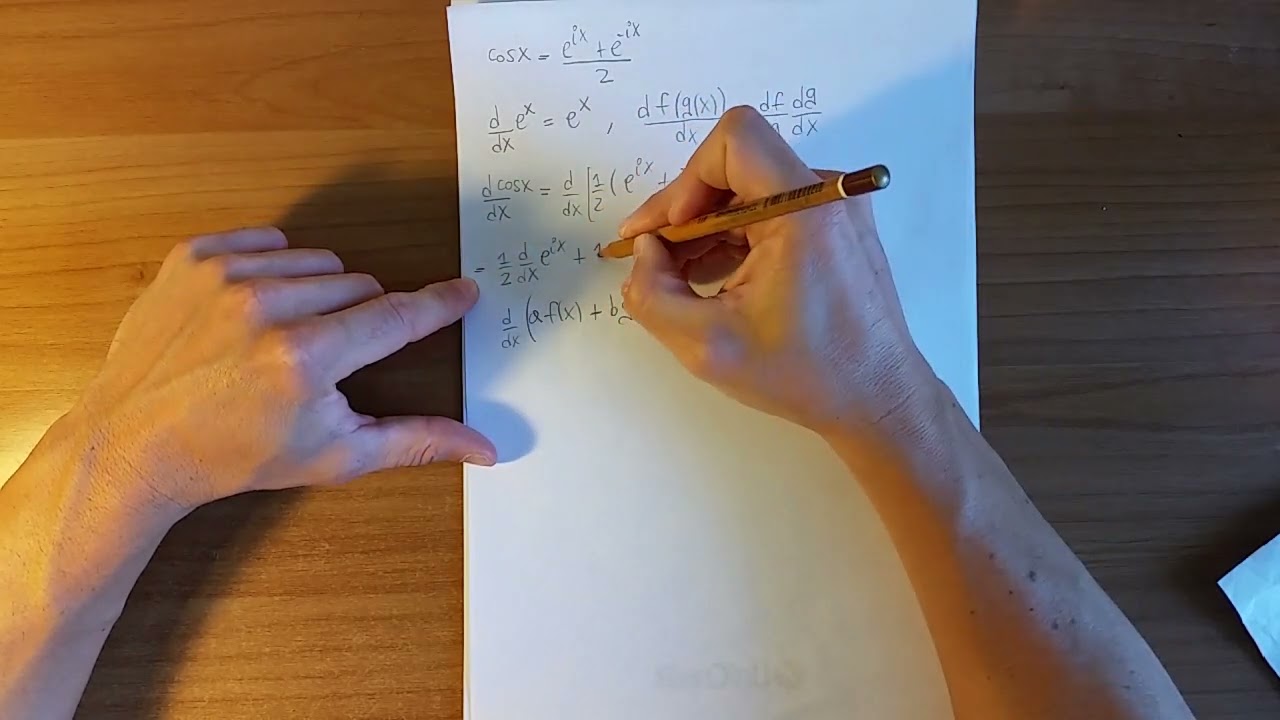 cosx = e^{ix} + e^{-ix} / 2
d/dx e^x = e^x , d f(g(x)) / dx df dg/dx
d cosx / dx = d/dx [ 1/2 ( e^{ix} +
= 1/2 d/dx e^{ix} + 1
d/dx ( a f(x) + b g